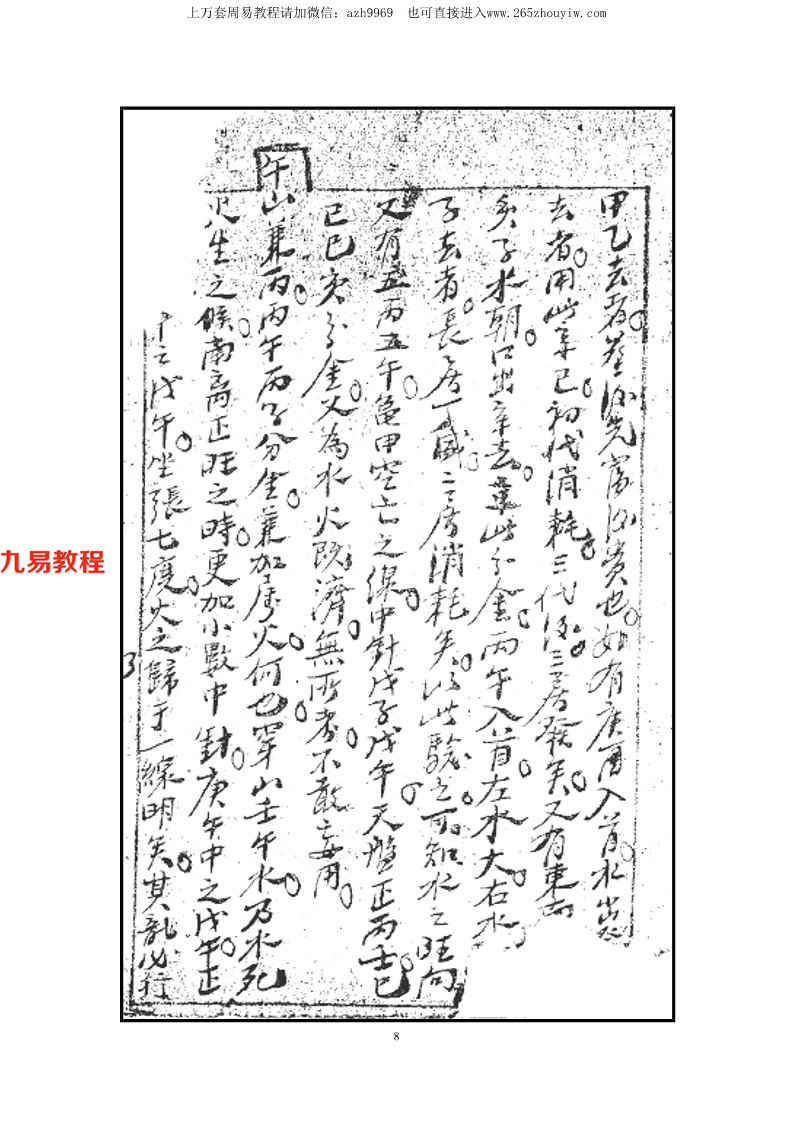 上万套周易教程请加微信：azh9969　也可直接进入www.265zhouyiw.com
甲乙去者。發後先富後貴也。如有庚酉入首。水出癸
去者。用此辛巳。初代消耗。三代後。三房發矣。又有東西
亥子水朝。口出辛去。葉此分金。丙午入首。左水大。右水
子去者。長房一盛。二三房消耗矣。以此驗之。可知水之旺向
又有五丙五午。龜甲空亡之線。中針戊子戊午。天盤正丙壬。巳
已巳亥分金。又為水火既濟。無所考。不敢妄用。
午山兼丙。丙午丙子分金。兼加尾火。何也。穿山壬午水。乃水死
火生之候。南离正旺之時。更加小數中針。庚午中之戊午。正
戊午。坐張七度。火之歸于一線明矣。其龍必行
九易教程
8